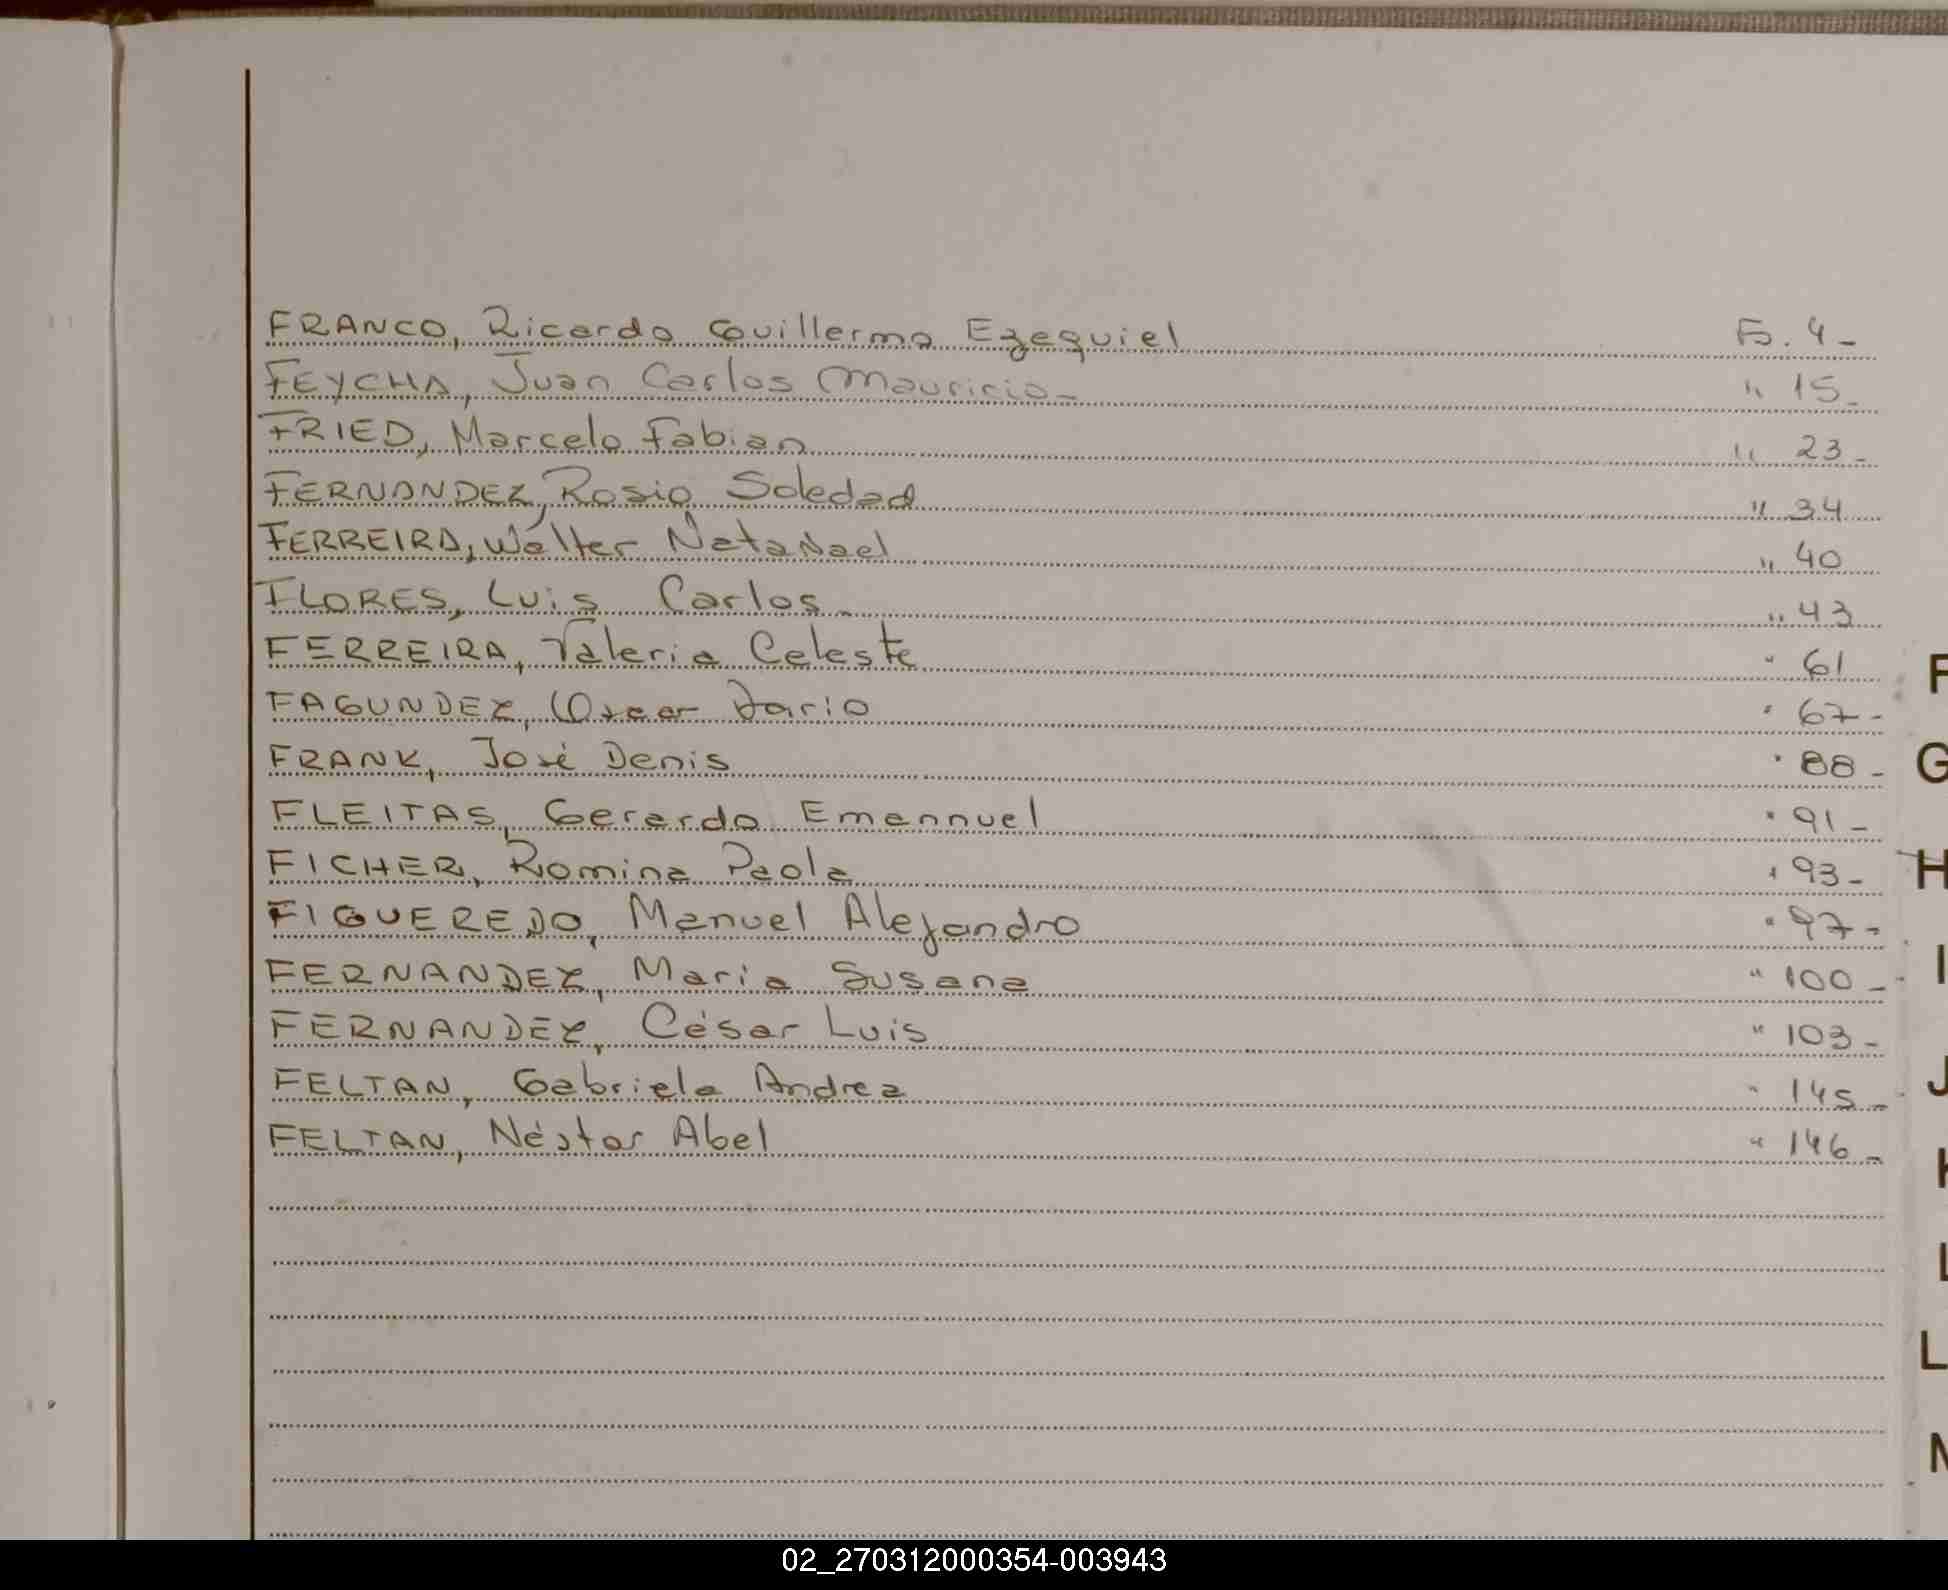 FRANCO, Ricardo Guillermo Ezequiel Fo. 4-
FEYCHA, Juan Carlos Mauricio- " 15-
FRIED, Marcelo Fabian " 23-
FERNANDEZ, Rosio Soledad " 34
FERREIRA, Walter Natanael " 40
FLORES, Luis Carlos- " 43
FERREIRA, Valeria Celeste " 61
FAGUNDEZ, Oscar Dario " 67-
FRANK, José Denis " 88-
FLEITAS, Gerardo Emannuel " 91-
FICHER, Romina Paola " 93-
FIGUEREDO, Manuel Alejandro " 97-
FERNANDEZ, Maria Susana " 100-
FERNANDEZ, César Luis " 103-
FELTAN, Gabriela Andrea " 145-
FELTAN, Néstor Abel " 146-
F
G
H
I
J
K
L
L
M
02_270312000354-003943